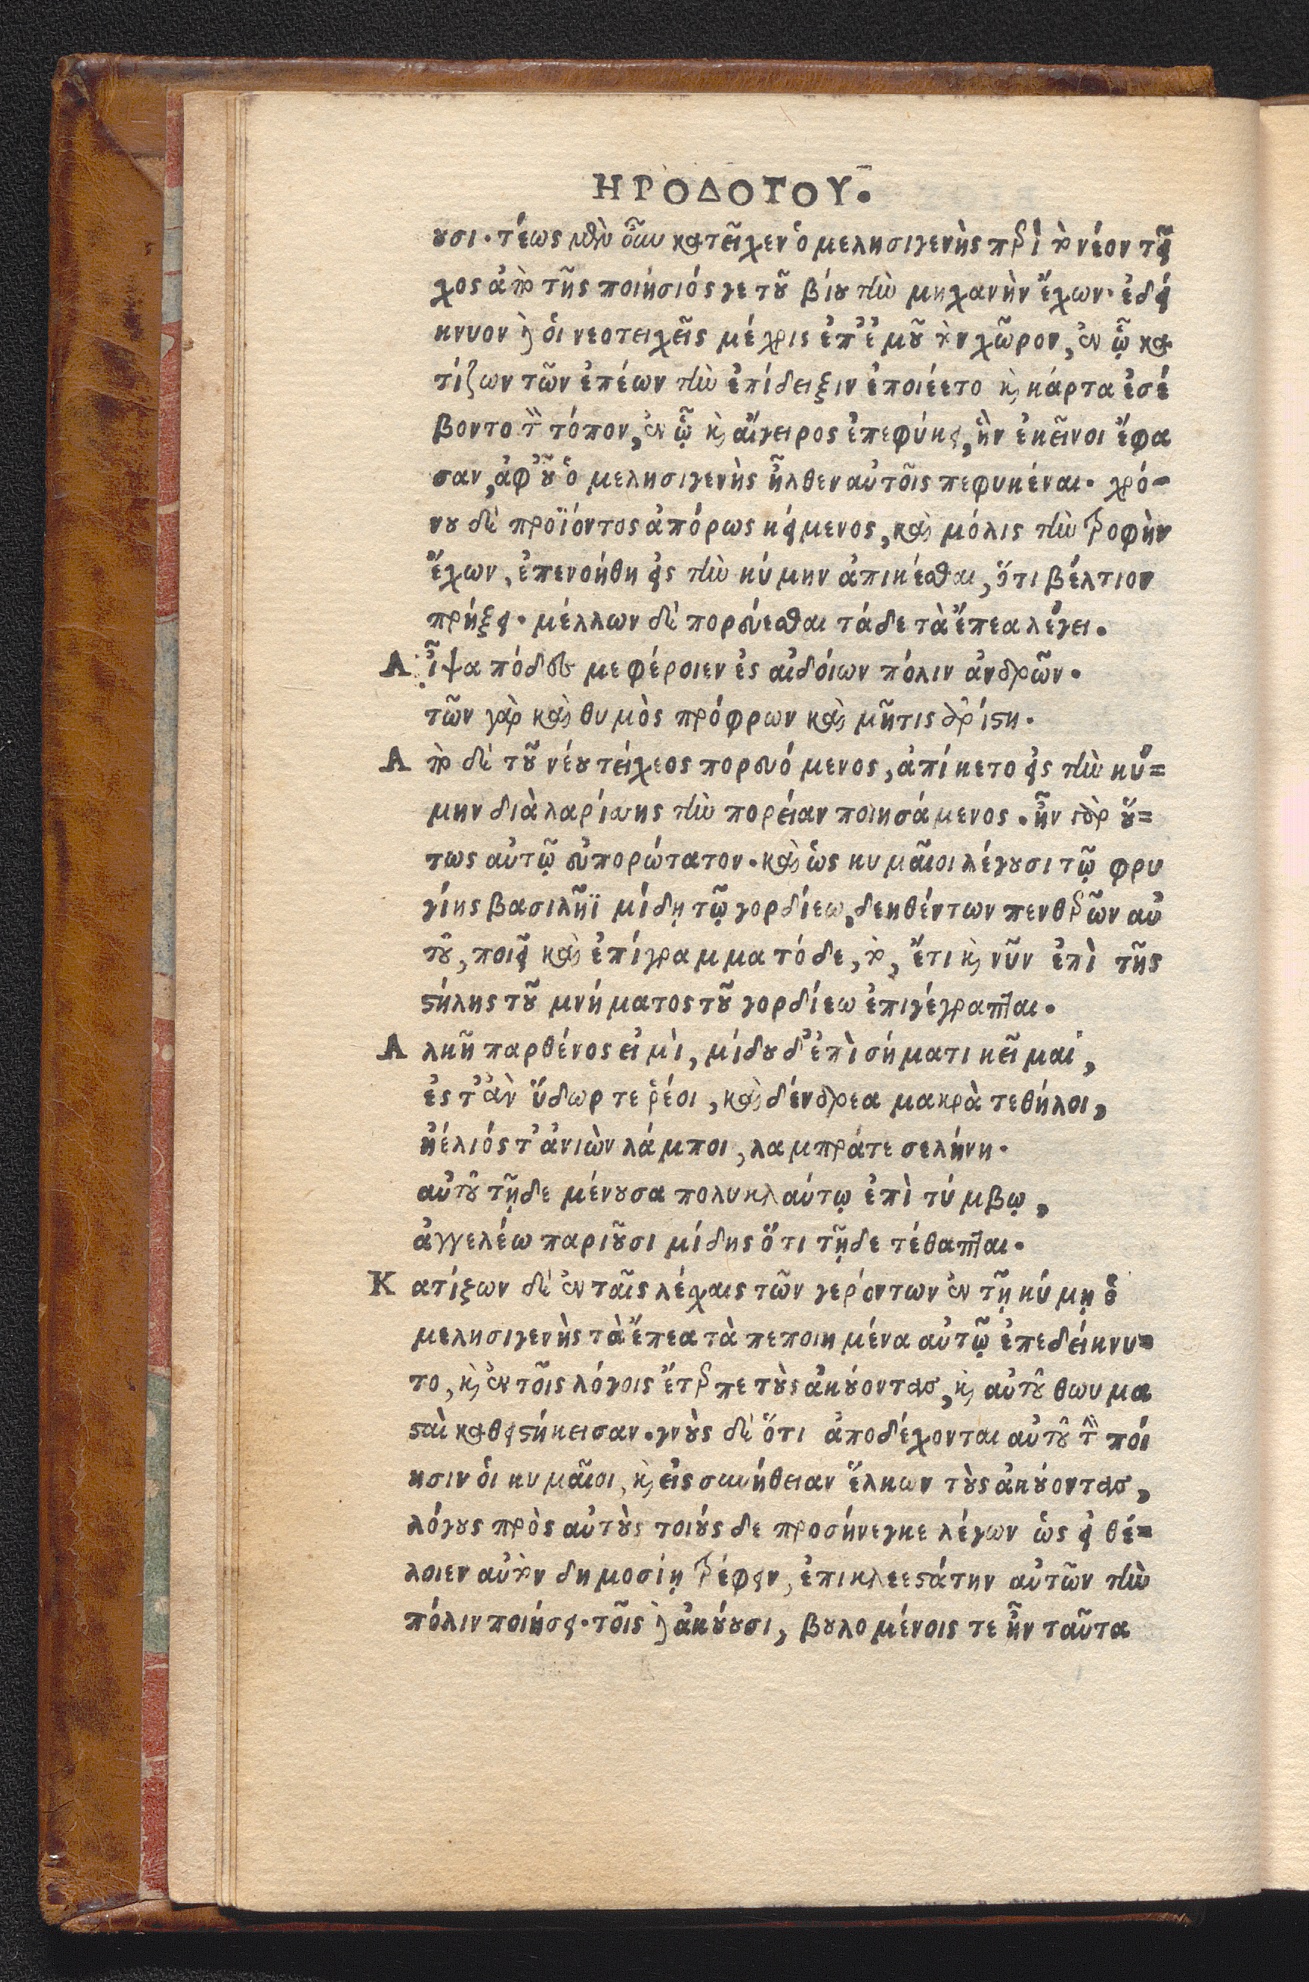 ΗΡΟΔΟΤΟΥ.
ουσι· τέως μὲν οὖν κατεῖχεν ὁ μελησιγενὴς περὶ τὸ νέον τεῖ
χος ἀπὸ τῆς ποιήσιός γε τοῦ βίου τὴν μηχανὴν ἔχων· ἐδεί
κνυον δὲ ὁι νεοτειχεῖς μέχρις ἐπ' ἐμοῦ τὸν χῶρον, ἐν ᾧ κα
τίζων τῶν ἐπέων τὴν ἐπίδειξιν ἐποιέετο καὶ κάρτα ἐσέ
βοντο τὸν τόπον, ἐν ᾧ καὶ αἴγειρος ἐπεφύκει, ἣν ἐκεῖνοι ἔφα
σαν, ἀφ' οὗ ὁ μελησιγενὴς ἦλθεν αὐτοῖς πεφυκέναι· χρό-
νου δὲ προϊόντος ἀπόρως κείμενος, καὶ μόλις τὴν τροφὴν
ἔχων, ἐπενοήθη εἰς τὴν κύμην ἀπικέσθαι, ὅτι βέλτιον
πρήξει· μέλλων δὲ πορεύεσθαι τάδε τὰ ἔπεα λέγει.
Αἶψα πόδες με φέροιεν ἐς αἰδοίων πόλιν ἀνδρῶν.
τῶν γὰρ καὶ θυμὸς πρόφρων καὶ μῆτις ἀρίστη.
Ἀπὸ δὲ τοῦ νέου τείχεος πορευόμενος, ἀπίκετο εἰς τὴν κύ=
μην διὰ λαρίσσης τὴν πορείαν ποιησάμενος. ἦν γὰρ οὕ=
τως αὐτῷ εὐπορώτατον. καὶ ὡς κυμαῖοι λέγουσι τῷ φρυ
γίης βασιλῆϊ μίδῃ τῷ γορδίεω, δεηθέντων πενθερῶν αὐ
τοῦ, ποιεῖ καὶ ἐπίγραμμα τόδε, τὸ, ἔτι καὶ νῦν ἐπὶ τῆς
στήλης τοῦ μνήματος τοῦ γορδίεω ἐπιγέγραπται.
Αλκῆ παρθένος εἰμὶ, μίδου δ' ἐπὶ σήματι κεῖμαι,
ἐς τ' ἂν ὕδωρ τε ῥέοι, καὶ δένδρεα μακρὰ τεθήλοι,
ἠέλιός τ' ἀνιὼν λάμποι, λαμπράτε σελήνη.
αὐτοῦ τῇδε μένουσα πολυκλαύτῳ ἐπὶ τύμβῳ,
ἀγγελέω παριοῦσι μίδης ὅτι τῇδε τέθαπται.
Κατίζων δὲ ἐν ταῖς λέσχαις τῶν γερόντων ἐν τῇ κύμῃ ὁ
μελησιγενὴς τὰ ἔπεα τὰ πεποιημένα αὐτῷ ἐπεδείκνυ=
το, καὶ ἐν τοῖς λόγοις ἔτερπε τοὺς ἀκούοντας, καὶ αὐτοῦ θωυμα
σταὶ καθειστήκεισαν. γνοὺς δὲ ὅτι ἀποδέχονται αὐτοῦ τὴν ποί
ησιν ὁι κυμαῖοι, καὶ εἰς συνήθειαν ἕλκων τοὺς ἀκούοντας,
λόγους πρὸς αὐτοὺς τοιούς δε προσήνεγκε λέγων ὡς εἰ θέ=
λοιεν αὐτὸν δημοσίῃ τρέφειν, ἐπικλεεστάτην αὐτῶν τὴν
πόλιν ποιήσει. τοῖς δὲ ἀκούουσι, βουλομένοις τε ἦν ταῦτα